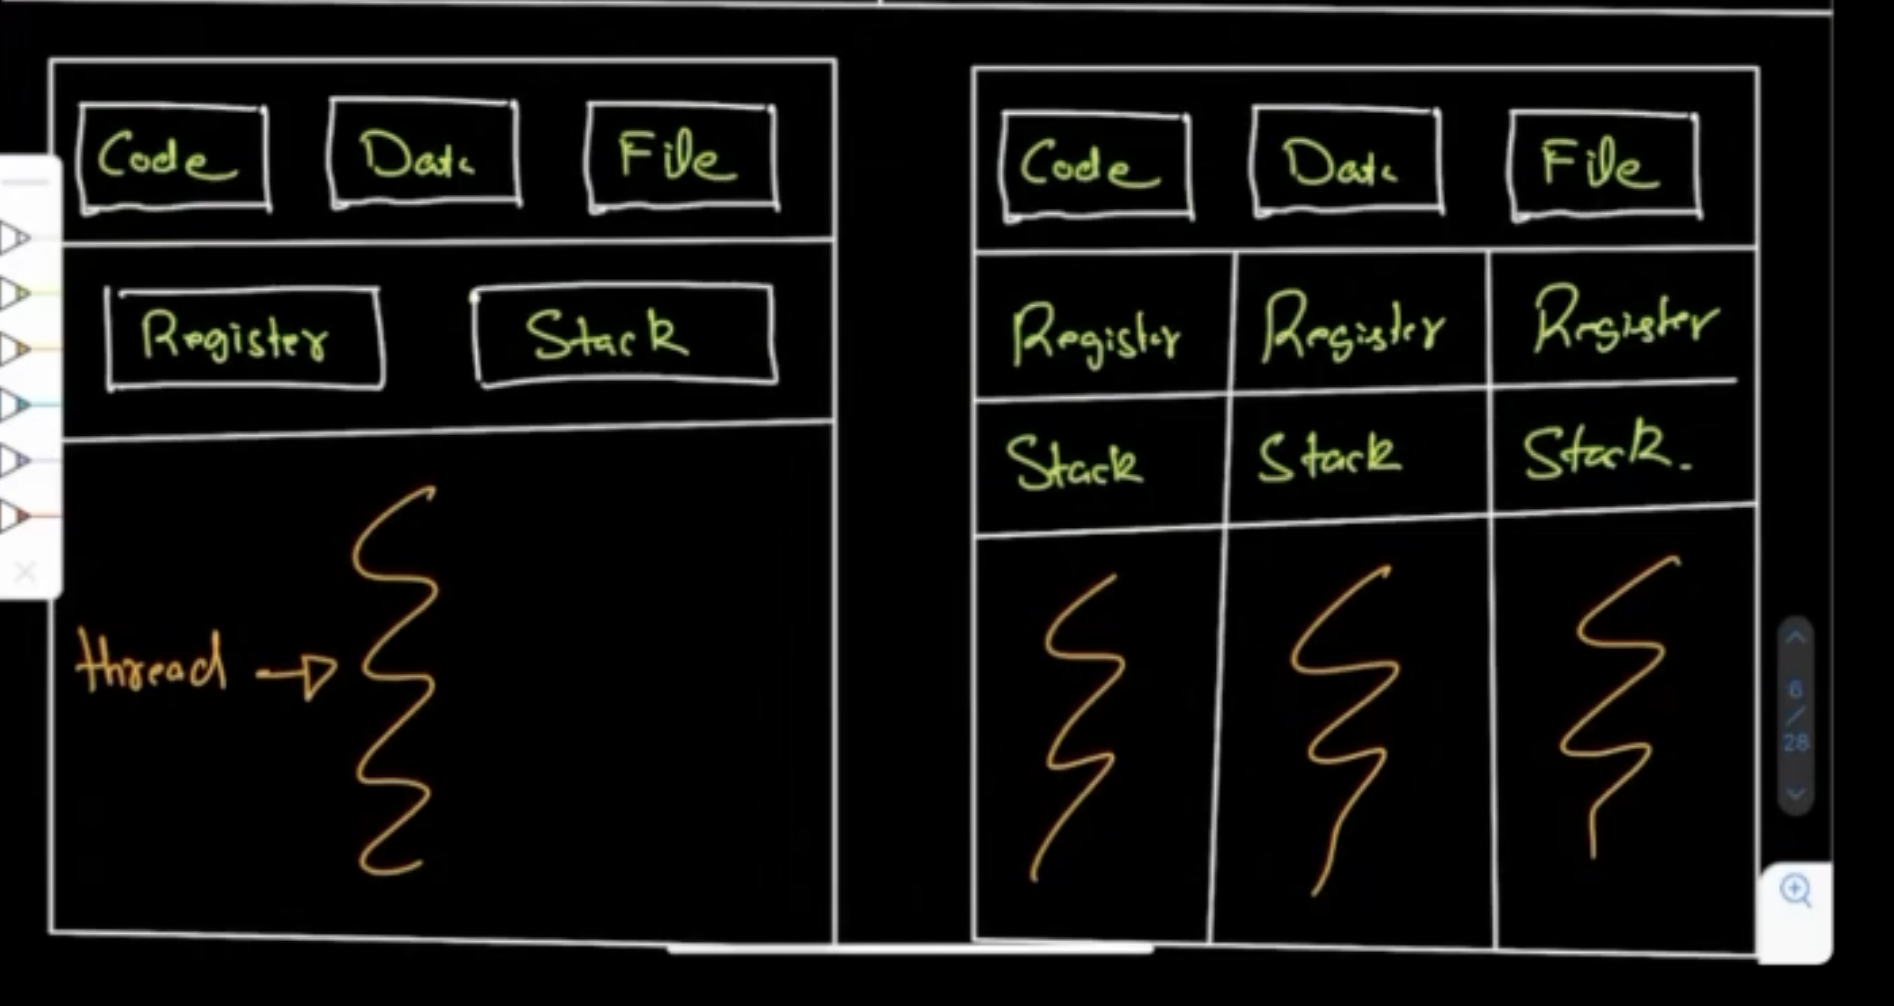 Code Data File
Register Stack
thread
Code Data File
Register Register Register
Stack Stack Stack.
6
/
28